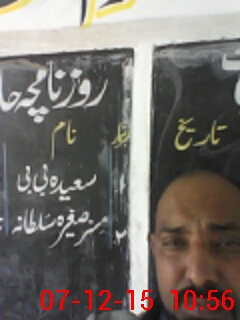 روزنامچہ
نام
تاریخ
سعیدہ بی بی
۲ مسز صغیرہ سلطانہ
07-12-15 10:56